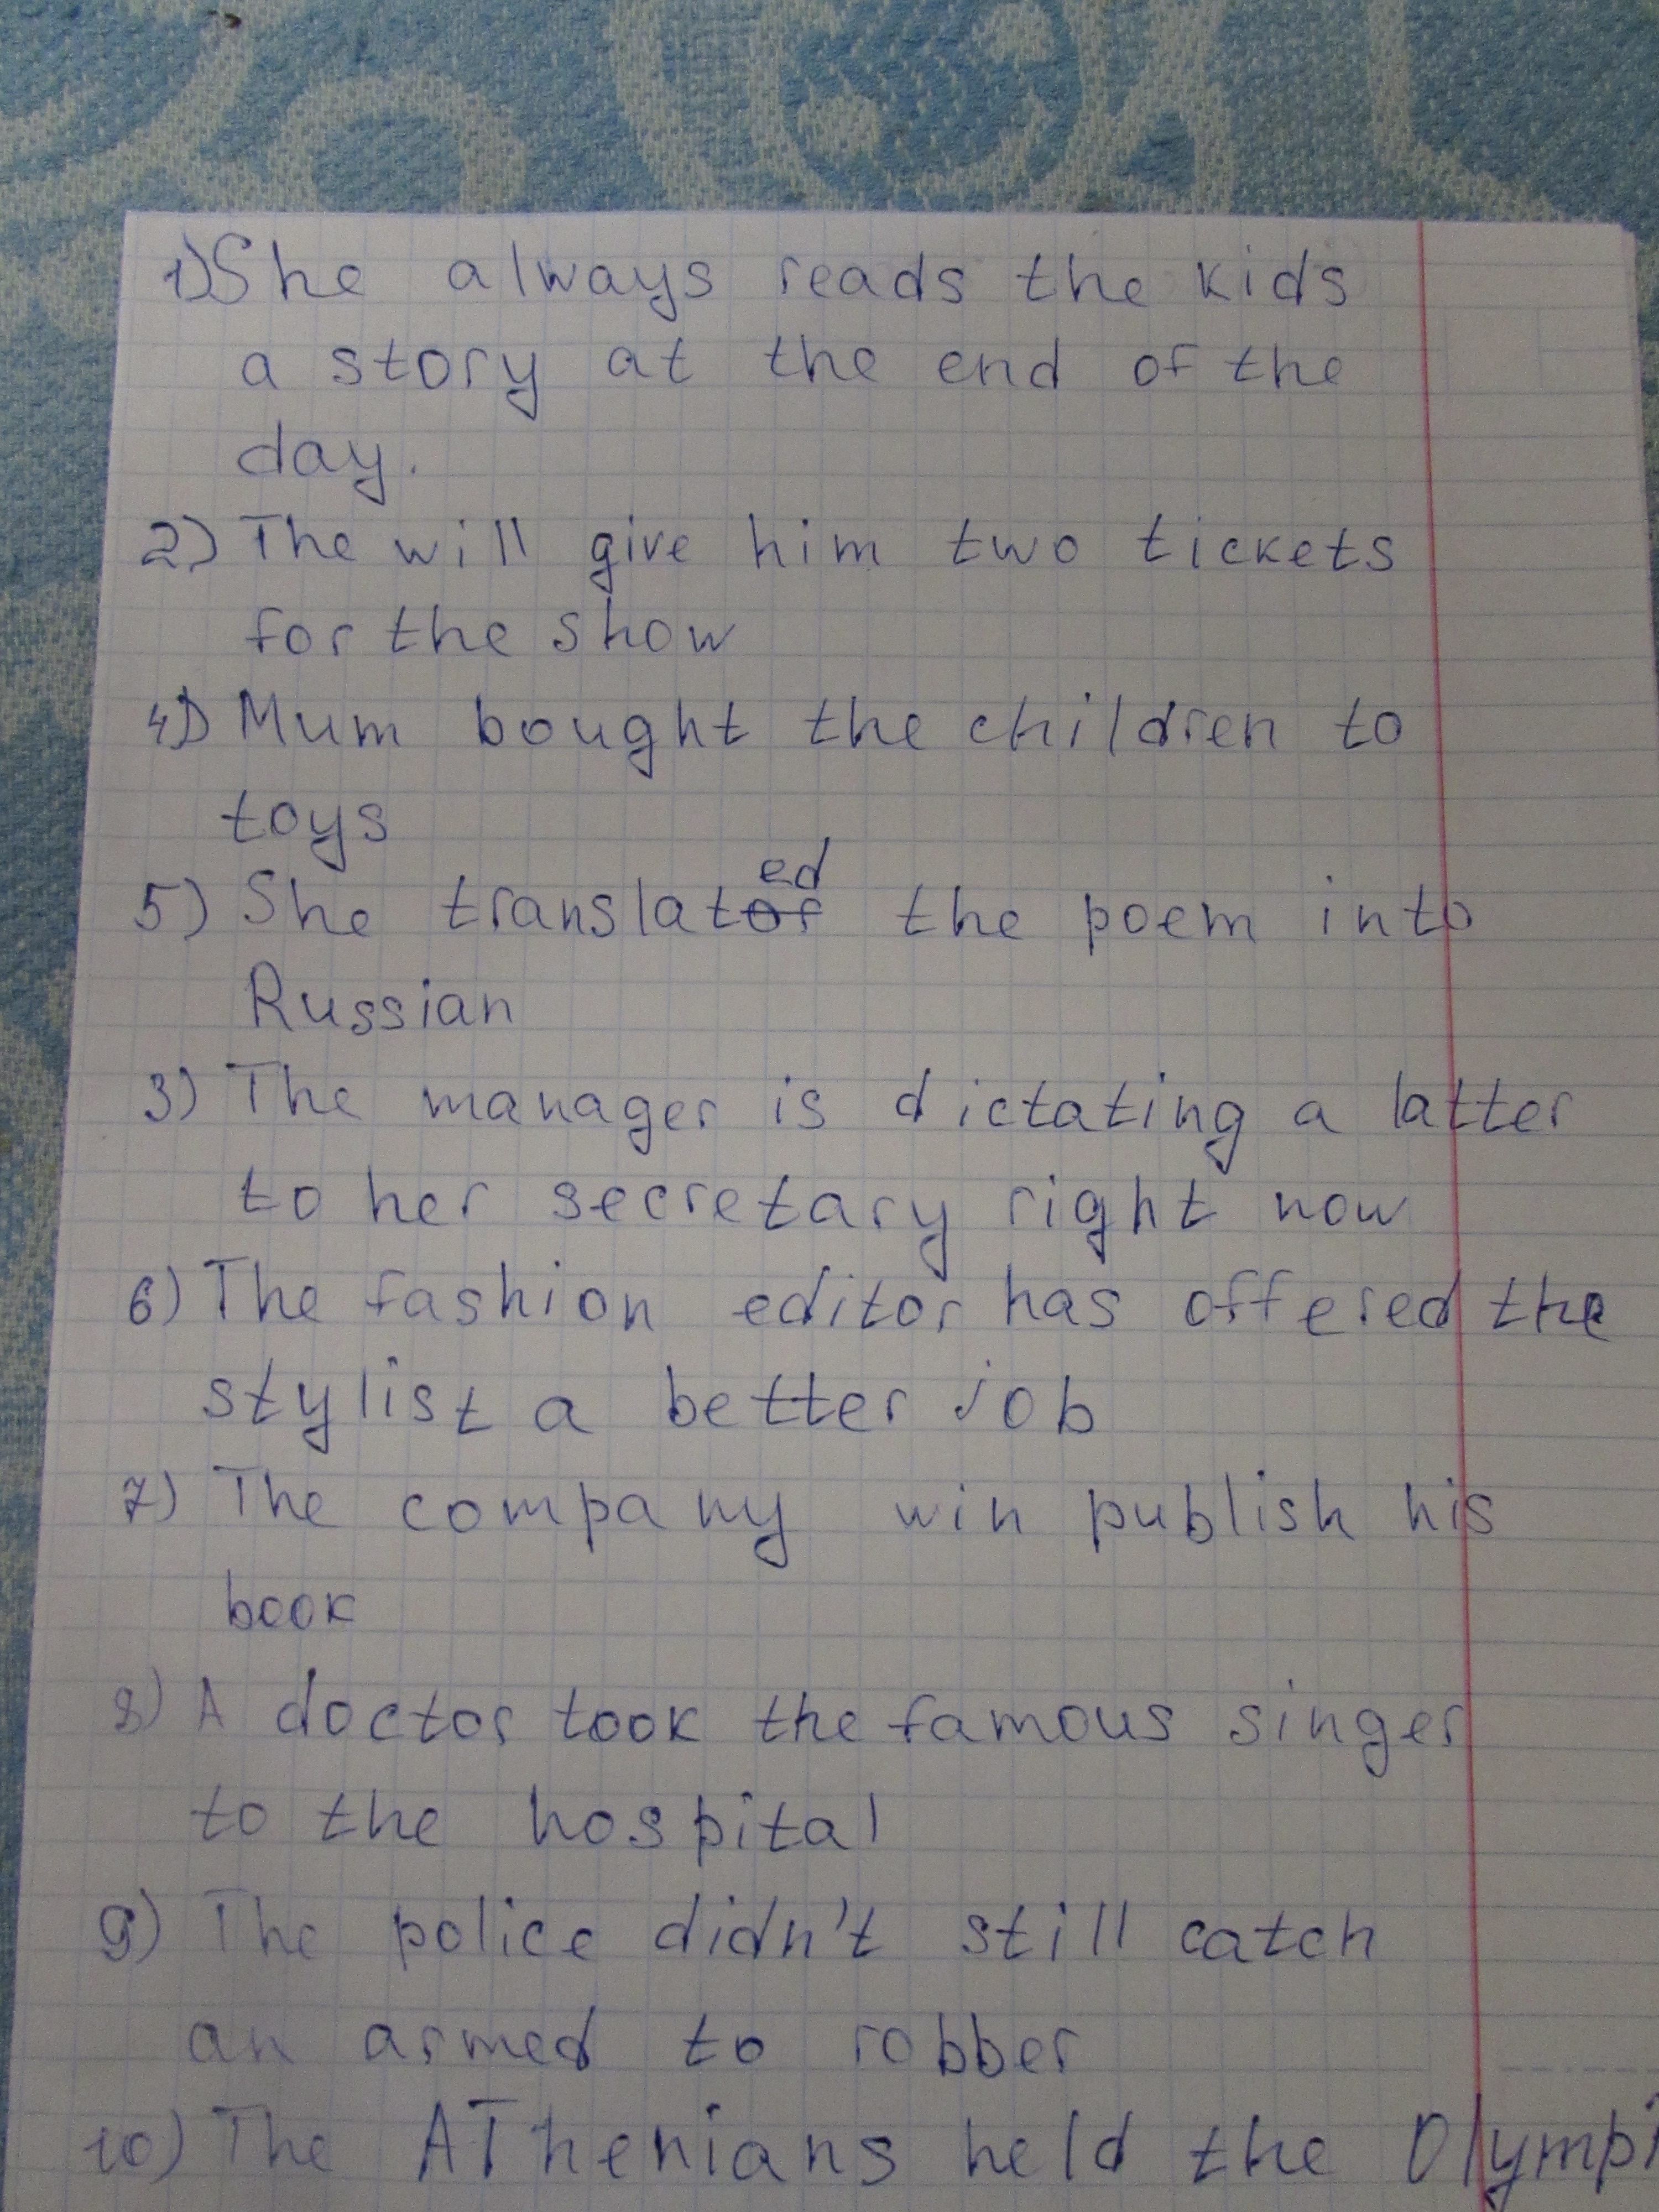 1) She always reads the kids
a story at the end of the
day.
2) The will give him two tickets
for the show
4) Mum bought the children to
toys
5) She translated the poem into
Russian
3) The manager is dictating a latter
to her secretary right now
6) The fashion editor has offered the
stylist a better job
7) The company win publish his
book
8) A doctor took the famous singer
to the hospital
9) The police didn't still catch
an armed to robber
10) The AThenians held the Olympi